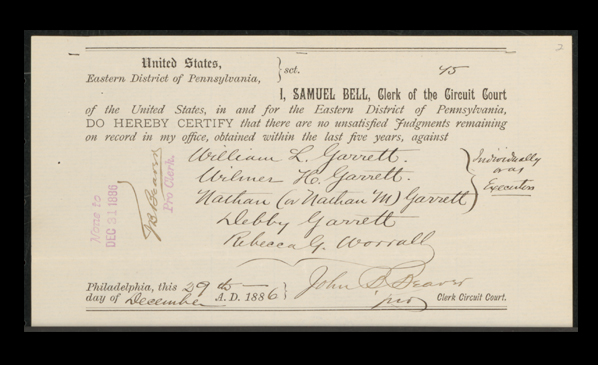 2
United States,
Eastern District of Pennsylvania, } sct. 45
I, SAMUEL BELL, Clerk of the Circuit Court
of the United States, in and for the Eastern District of Pennsylvania,
DO HEREBY CERTIFY that there are no unsatisfied Judgments remaining
on record in my office, obtained within the last five years, against
William L. Garrett.
Wilmer H. Garrett.
Nathan (or Nathan M) Garrett
Individually
and
Executors
Debby Garrett
Rebecca G. Worrall
None to
DEC 31 1886
J B Beaver
Pro Clerk.
Philadelphia, this 29th
day of December A. D. 1886 }
John B Beaver
pro Clerk Circuit Court.